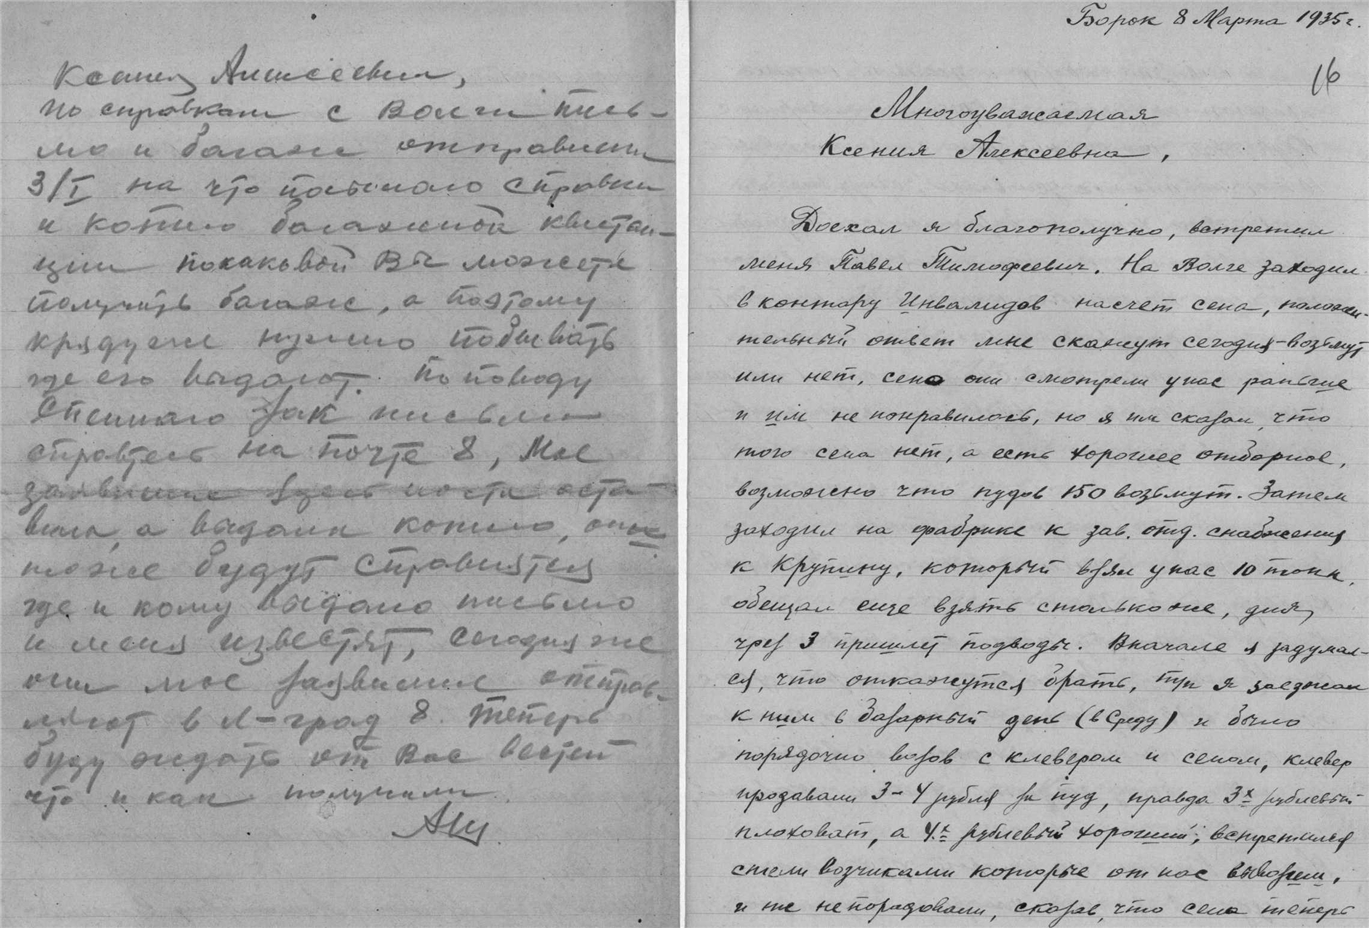 Ксения Алексеевна,
по справкам с Волги пись-
мо и багаж отправили
3/I на что посылаю справки
и копию багажной квитан-
ции по каковой Вы можете
получить багаж, а поэтому
нужно побывать
где его выдают. По поводу
спешного зак письма
справтесь на почте 8, Мое
заявление здесь почта оста-
вила, а выдали копию, они
тоже будут справлятся
где и кому выдано письмо
и меня известят, сегодня же
они мое заявление отправ-
ляют в Л-град 8. Теперь
буду ждать от Вас вестей
что и как получили
Борок 8 Марта 1935 г.
16
Многоуважаемая
Ксения Алексеевна,
Доехал я благополучно, встретил
меня Павел Тимофеевич. На Волге заходил
в контору Инвалидов насчет сена, положи-
тельный ответ мне скажут сегодня-возьмут
или нет, сено они смотрели у нас раньше
и им не понравилось, но я им сказал, что
того сена нет, а есть хорошее отборное,
возможно что пудов 150 возьмут. Затем
заходил на фабрике к зав. отд. снабжения
к Крупину, который взял у нас 10 тонн,
обещал еще взять столько же, дня
чрез 3 пришлет подводы. Вначале я задумал-
ся, что откажутся брать, тк я заезжал
к ним в базарный день (в Среду) и было
порядочно возов с клевером и сеном, клевер
продавали 3-4 рубля за пуд, правда 3х рублевый
плоховат, а 4х рублевый хороший; встретился
с теми возчиками которые от нас вывозили,
и те не порадовали, сказав, что сена теперь